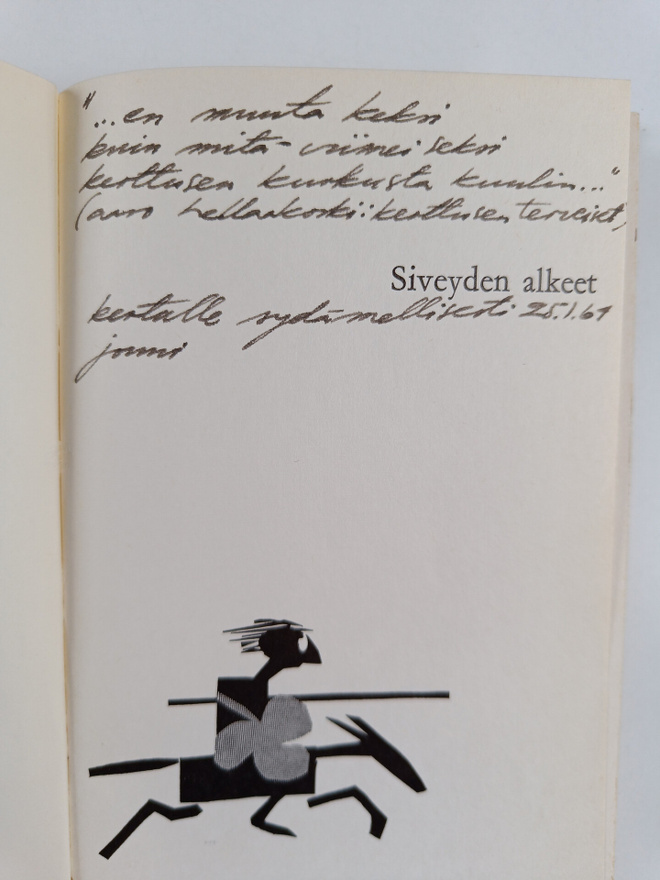 "...en muuta keksi
kuin mitä viimeiseksi
kerttusen kurkusta kuulin..."
(aaro hellaakoski: kerttusen terveiset)
Siveyden alkeet
kertulle sydämellisesti 25.1.61
jouni